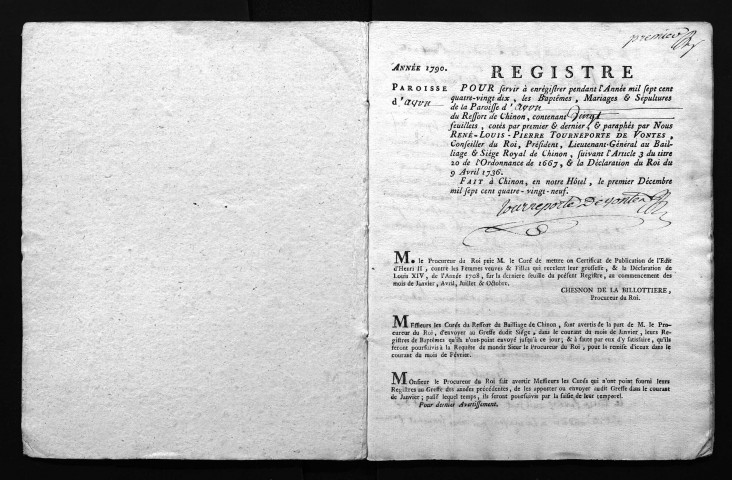 premier
ANNÉE 1790.
REGISTRE
PAROISSE
d'avon
POUR servir à enrégistrer pendant l'Année mil sept cent
quatre-vingt dix, les Baptêmes, Mariages & Sépultures
de la Paroisse d'avon
du Ressort de Chinon, contenant vingt
feuillets, cotés par premier & dernier, & paraphés par Nous
RENÉ-LOUIS-PIERRE TOURNEPORTE DE VONTES,
Conseiller du Roi, Président, Lieutenant-Général au Bail-
liage & Siége Royal de Chinon, suivant l'Article 3 du titre
20 de l'Ordonnance de 1667, & la Déclaration du Roi du
9 Avril 1736.
FAIT à Chinon, en notre Hôtel, le premier Décembre
mil sept cent quatre-vingt-neuf.
tourneporte Devontes
M. le Procureur du Roi prie M. le Curé de mettre un Certificat de Publication de l'Edit
d'Henri II, contre les Femmes veuves & Filles qui recelent leur grossesse, & la Déclaration de
Louis XIV, de l'Année 1708, sur la derniere feuille du présent Registre, au commencement des
mois de Janvier, Avril, Juillet & Octobre.
CHESNON DE LA BILLOTTIERE,
Procureur du Roi.
MEssieurs les Curés du Ressort du Bailliage de Chinon, sont avertis de la part de M. le Pro-
cureur du Roi, d'envoyer au Greffe dudit Siége, dans le courant du mois de Janvier, leurs Re-
gistres de Baptêmes qu'ils n'ont point envoyé jusqu'à ce jour; & à faute par eux d'y satisfaire, qu'ils
seront poursuivis à la Requête de mondit Sieur le Procureur du Roi, pour la remise d'iceux dans le
courant du mois de Février.
MOnsieur le Procureur du Roi fait avertir Messieurs les Curés qui n'ont point fourni leurs
Registres au Greffe des années précédentes, de les apporter ou envoyer audit Greffe dans le courant
de Janvier; passé lequel temps, ils seront poursuivis par la saisie de leur temporel.
Pour dernier Avertissement.